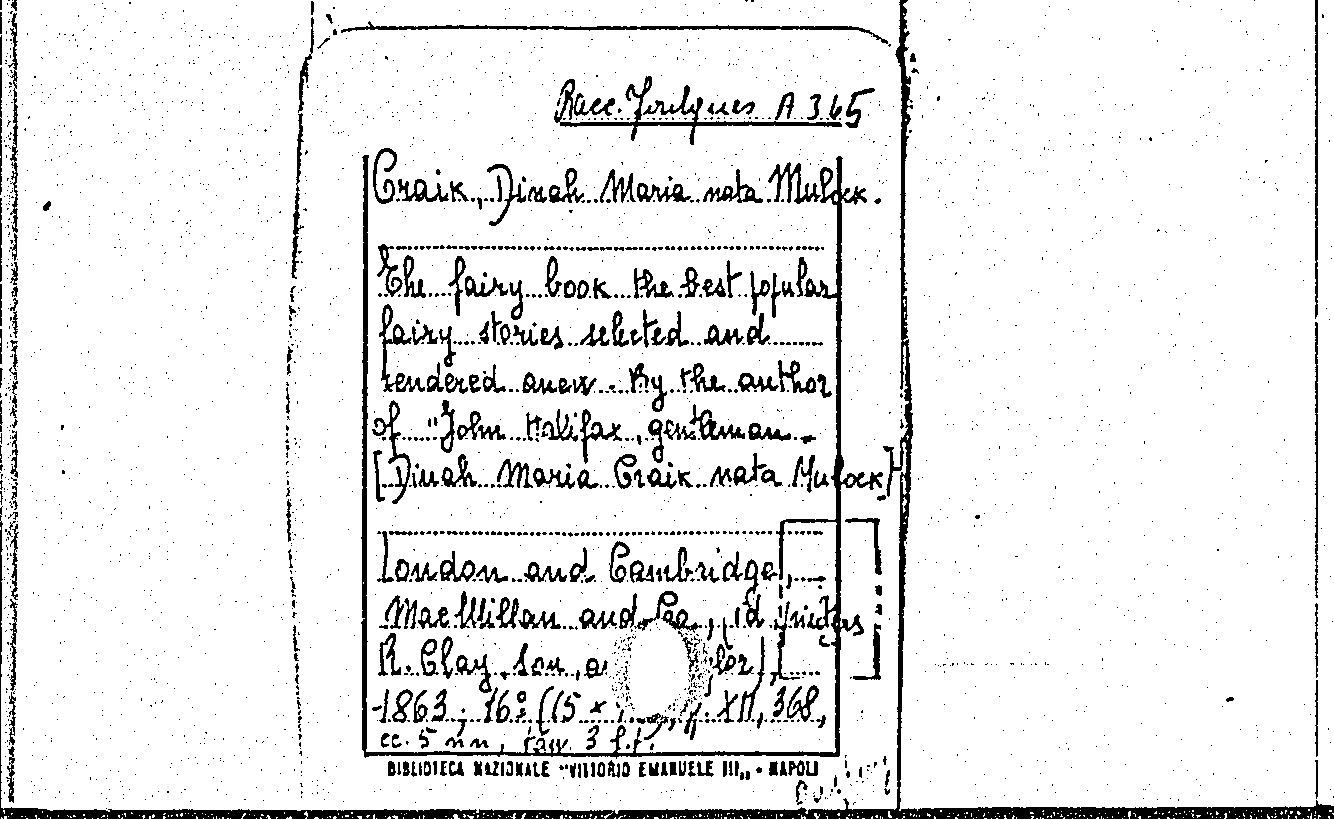 Racc. Foulques A 365
Craik, Dinah Maria nata Mulock.
The fairy book the best popular
fairy stories selected and
rendered anew. By the author
of "John Halifax, gentleman_
[Dinah Maria Craik nata Mulock]
London and Cambridge,
MacMillan and Co,
R. Clay, son,
1863; 16° (15 × XII, 368,
cc. 5 nn, tav. 3 f.t.
BIBLIOTECA NAZIONALE "VITTORIO EMANUELE III„ - NAPOLI